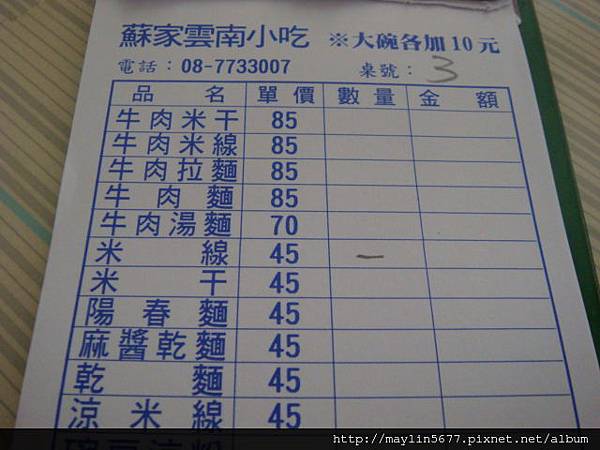 蘇家雲南小吃 ※大碗各加10元
電話：08-7733007 桌號：3
品名 單價 數量 金額
牛肉米干 85
牛肉米線 85
牛肉拉麵 85
牛肉麵 85
牛肉湯麵 70
米線 45 一
米干 45
陽春麵 45
麻醬乾麵 45
乾麵 45
涼米線 45
http://maylin5677.pixnet.net/album